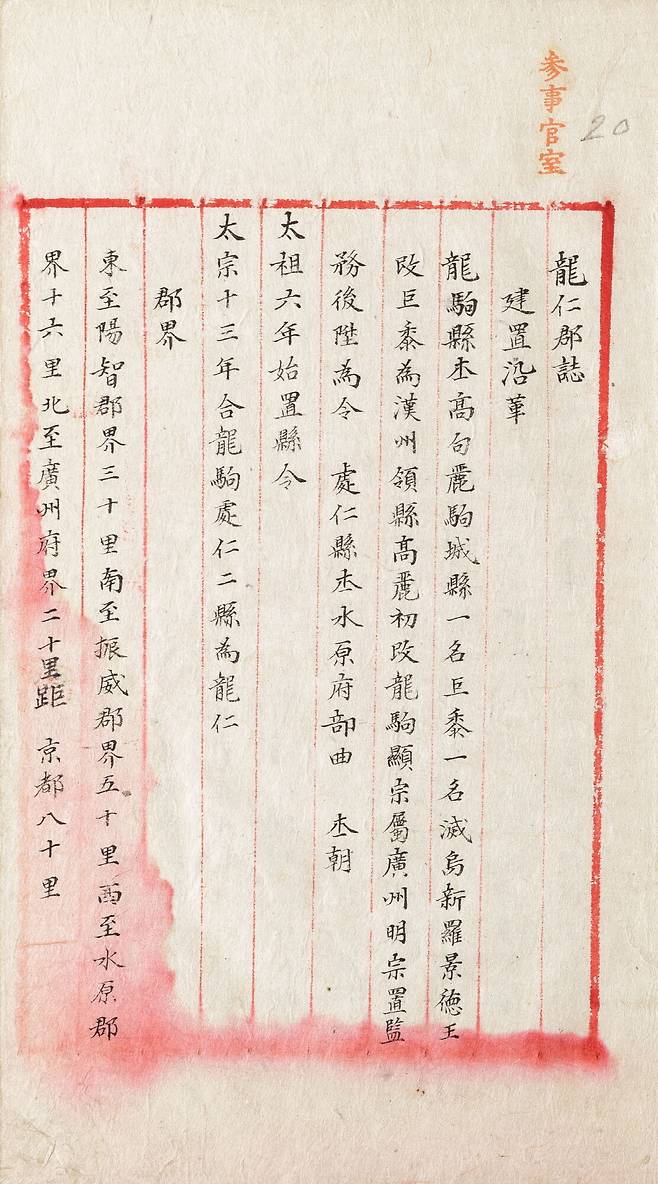 参事官室
20
龍仁郡誌
建置沿革
龍駒縣本髙句麗駒城縣一名巨黍一名滅烏新羅景徳王
改巨黍為漢州領縣髙麗初改龍駒顯宗屬廣州明宗置監
務後陞為令 處仁縣本水原府部曲 本朝
太祖六年始置縣令
太宗十三年合龍駒處仁二縣為龍仁
郡界
東至陽智郡界三十里南至振威郡界五十里西至水原郡
界十六里北至廣州府界二十里距 京都八十里